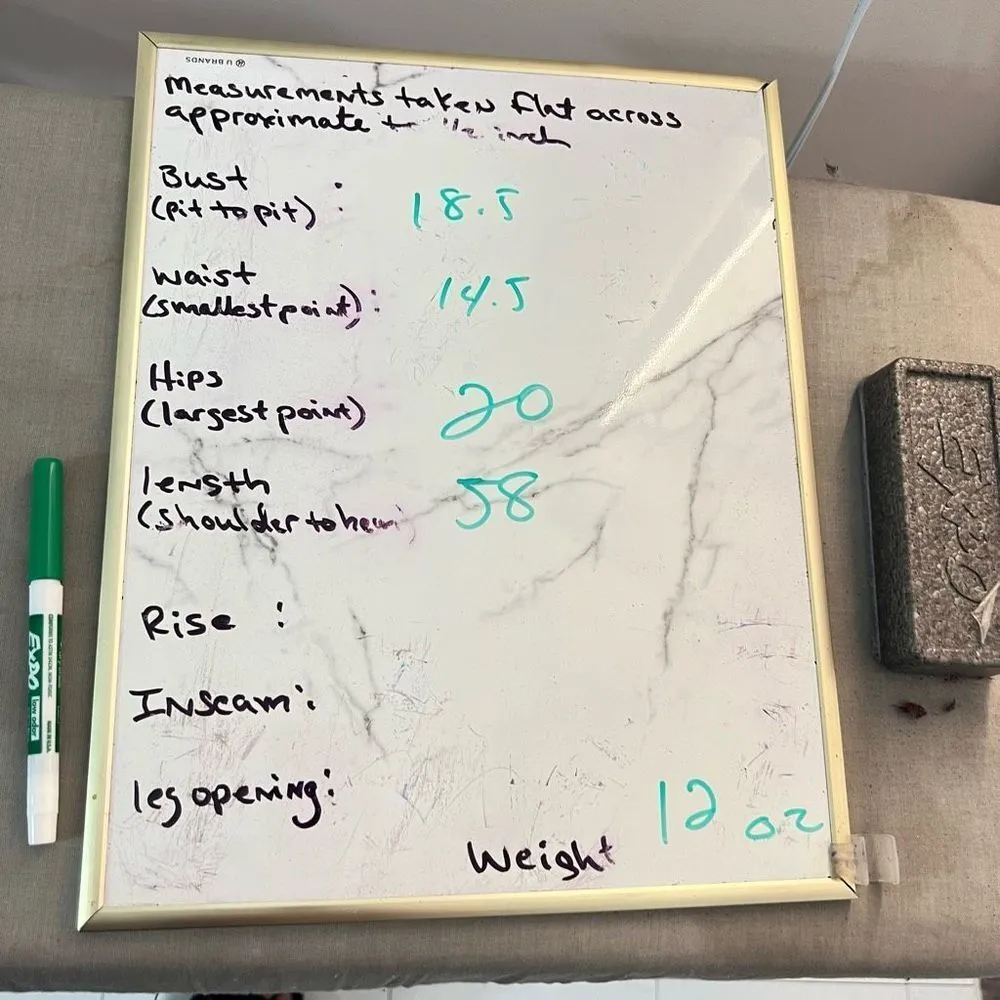 U BRANDS
Measurements taken flat across
approximate to 1/2 inch
Bust
(pit to pit) : 18.5
Waist
(smallest point) : 14.5
Hips
(largest point) 20
length
(shoulder to hem) 58
Rise :
Inseam :
leg opening :
12 oz
Weight
EXPO
low odor
MADE IN U.S.A.